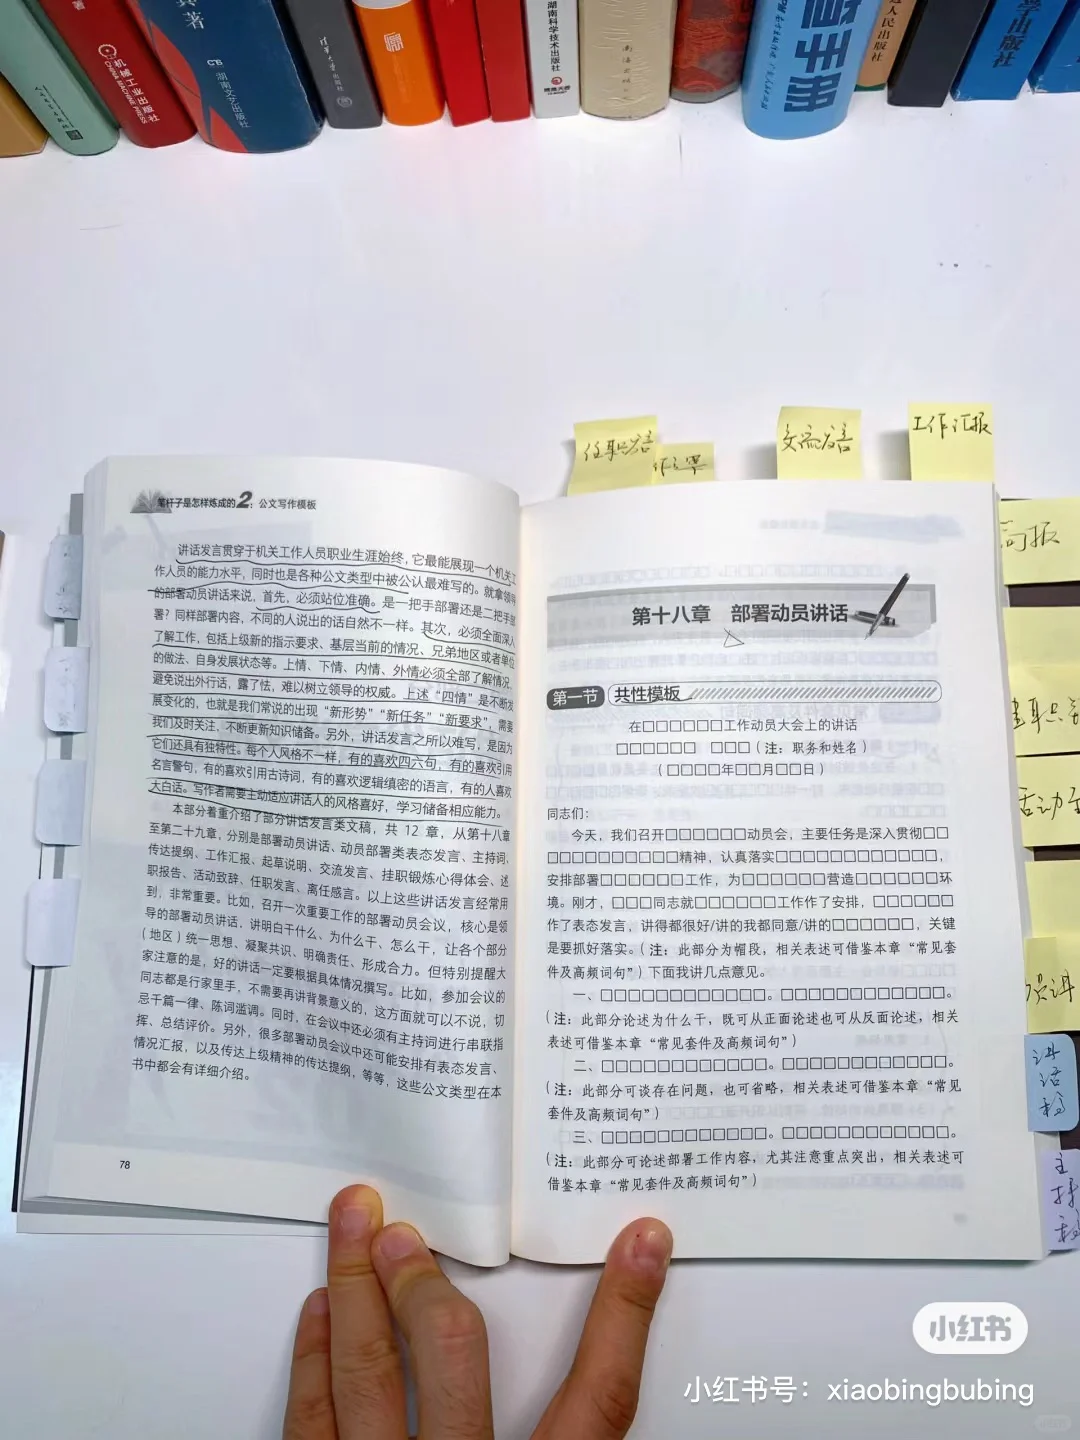 著
机械工业出版社
CHINA MACHINE PRESS
兵 著
湖南文艺出版社
清华大学出版社
湖南科学技术出版社
博集天卷
南海出版公司
手册
人民出版社
学出版社
出版社
任职发言
交流发言
工作汇报
笔杆子是怎样炼成的2：公文写作模板
讲话发言贯穿于机关工作人员职业生涯始终，它最能展现一个机关工
作人员的能力水平，同时也是各种公文类型中被公认最难写的。就拿领导
的部署动员讲话来说，首先，必须站位准确。是一把手部署还是二把手部
署？同样部署内容，不同的人说出的话自然不一样。其次，必须全面深入
了解工作，包括上级新的指示要求、基层当前的情况、兄弟地区或者单位
的做法、自身发展状态等。上情、下情、内情、外情必须全部了解情况，
避免说出外行话，露了怯，难以树立领导的权威。上述“四情”是不断发
展变化的，也就是我们常说的出现“新形势”“新任务”“新要求”，需要
我们及时关注，不断更新知识储备。另外，讲话发言之所以难写，是因为
它们还具有独特性。每个人风格不一样，有的喜欢四六句，有的喜欢引用
名言警句，有的喜欢引用古诗词，有的喜欢逻辑缜密的语言，有的人喜欢
大白话。写作者需要主动适应讲话人的风格喜好，学习储备相应能力。
本部分着重介绍了部分讲话发言类文稿，共 12 章，从第十八章
至第二十九章，分别是部署动员讲话、动员部署类表态发言、主持词、
传达提纲、工作汇报、起草说明、交流发言、挂职锻炼心得体会、述
职报告、活动致辞、任职发言、离任感言。以上这些讲话发言经常用
到，非常重要。比如，召开一次重要工作的部署动员会议，核心是领
导的部署动员讲话，讲明白干什么、为什么干、怎么干，让各个部分
（地区）统一思想、凝聚共识、明确责任、形成合力。但特别提醒大
家注意的是，好的讲话一定要根据具体情况撰写。比如，参加会议的
同志都是行家里手，不需要再讲背景意义的，这方面就可以不说，切
忌千篇一律、陈词滥调。同时，在会议中还必须有主持词进行串联指
挥、总结评价。另外，很多部署动员会议中还可能安排有表态发言、
情况汇报，以及传达上级精神的传达提纲，等等，这些公文类型在本
书中都会有详细介绍。
78
第十八章 部署动员讲话
第一节 共性模板
在□□□□□□工作动员大会上的讲话
□□□□□□ □□□（注：职务和姓名）
（□□□□年□□月□□日）
同志们：
今天，我们召开□□□□□□动员会，主要任务是深入贯彻□□
□□□□□□□□□□精神，认真落实□□□□□□□□□□□□，
安排部署□□□□□□工作，为□□□□□□营造□□□□□□环
境。刚才，□□□同志就□□□□□□工作作了安排，□□□□□□
作了表态发言，讲得都很好/讲的我都同意/讲的□□□□□□，关键
是要抓好落实。（注：此部分为帽段，相关表述可借鉴本章“常见套
件及高频词句”）下面我讲几点意见。
一、□□□□□□□□□□□□。□□□□□□□□□□□□。
（注：此部分论述为什么干，既可从正面论述也可从反面论述，相关
表述可借鉴本章“常见套件及高频词句”）
二、□□□□□□□□□□□□。□□□□□□□□□□□□。
（注：此部分可谈存在问题，也可省略，相关表述可借鉴本章“常见
套件及高频词句”）
三、□□□□□□□□□□□□。□□□□□□□□□□□□。
（注：此部分可论述部署工作内容，尤其注意重点突出，相关表述可
借鉴本章“常见套件及高频词句”）
简报
活动
讲话稿
主持稿
小红书
小红书号：xiaobingbubing